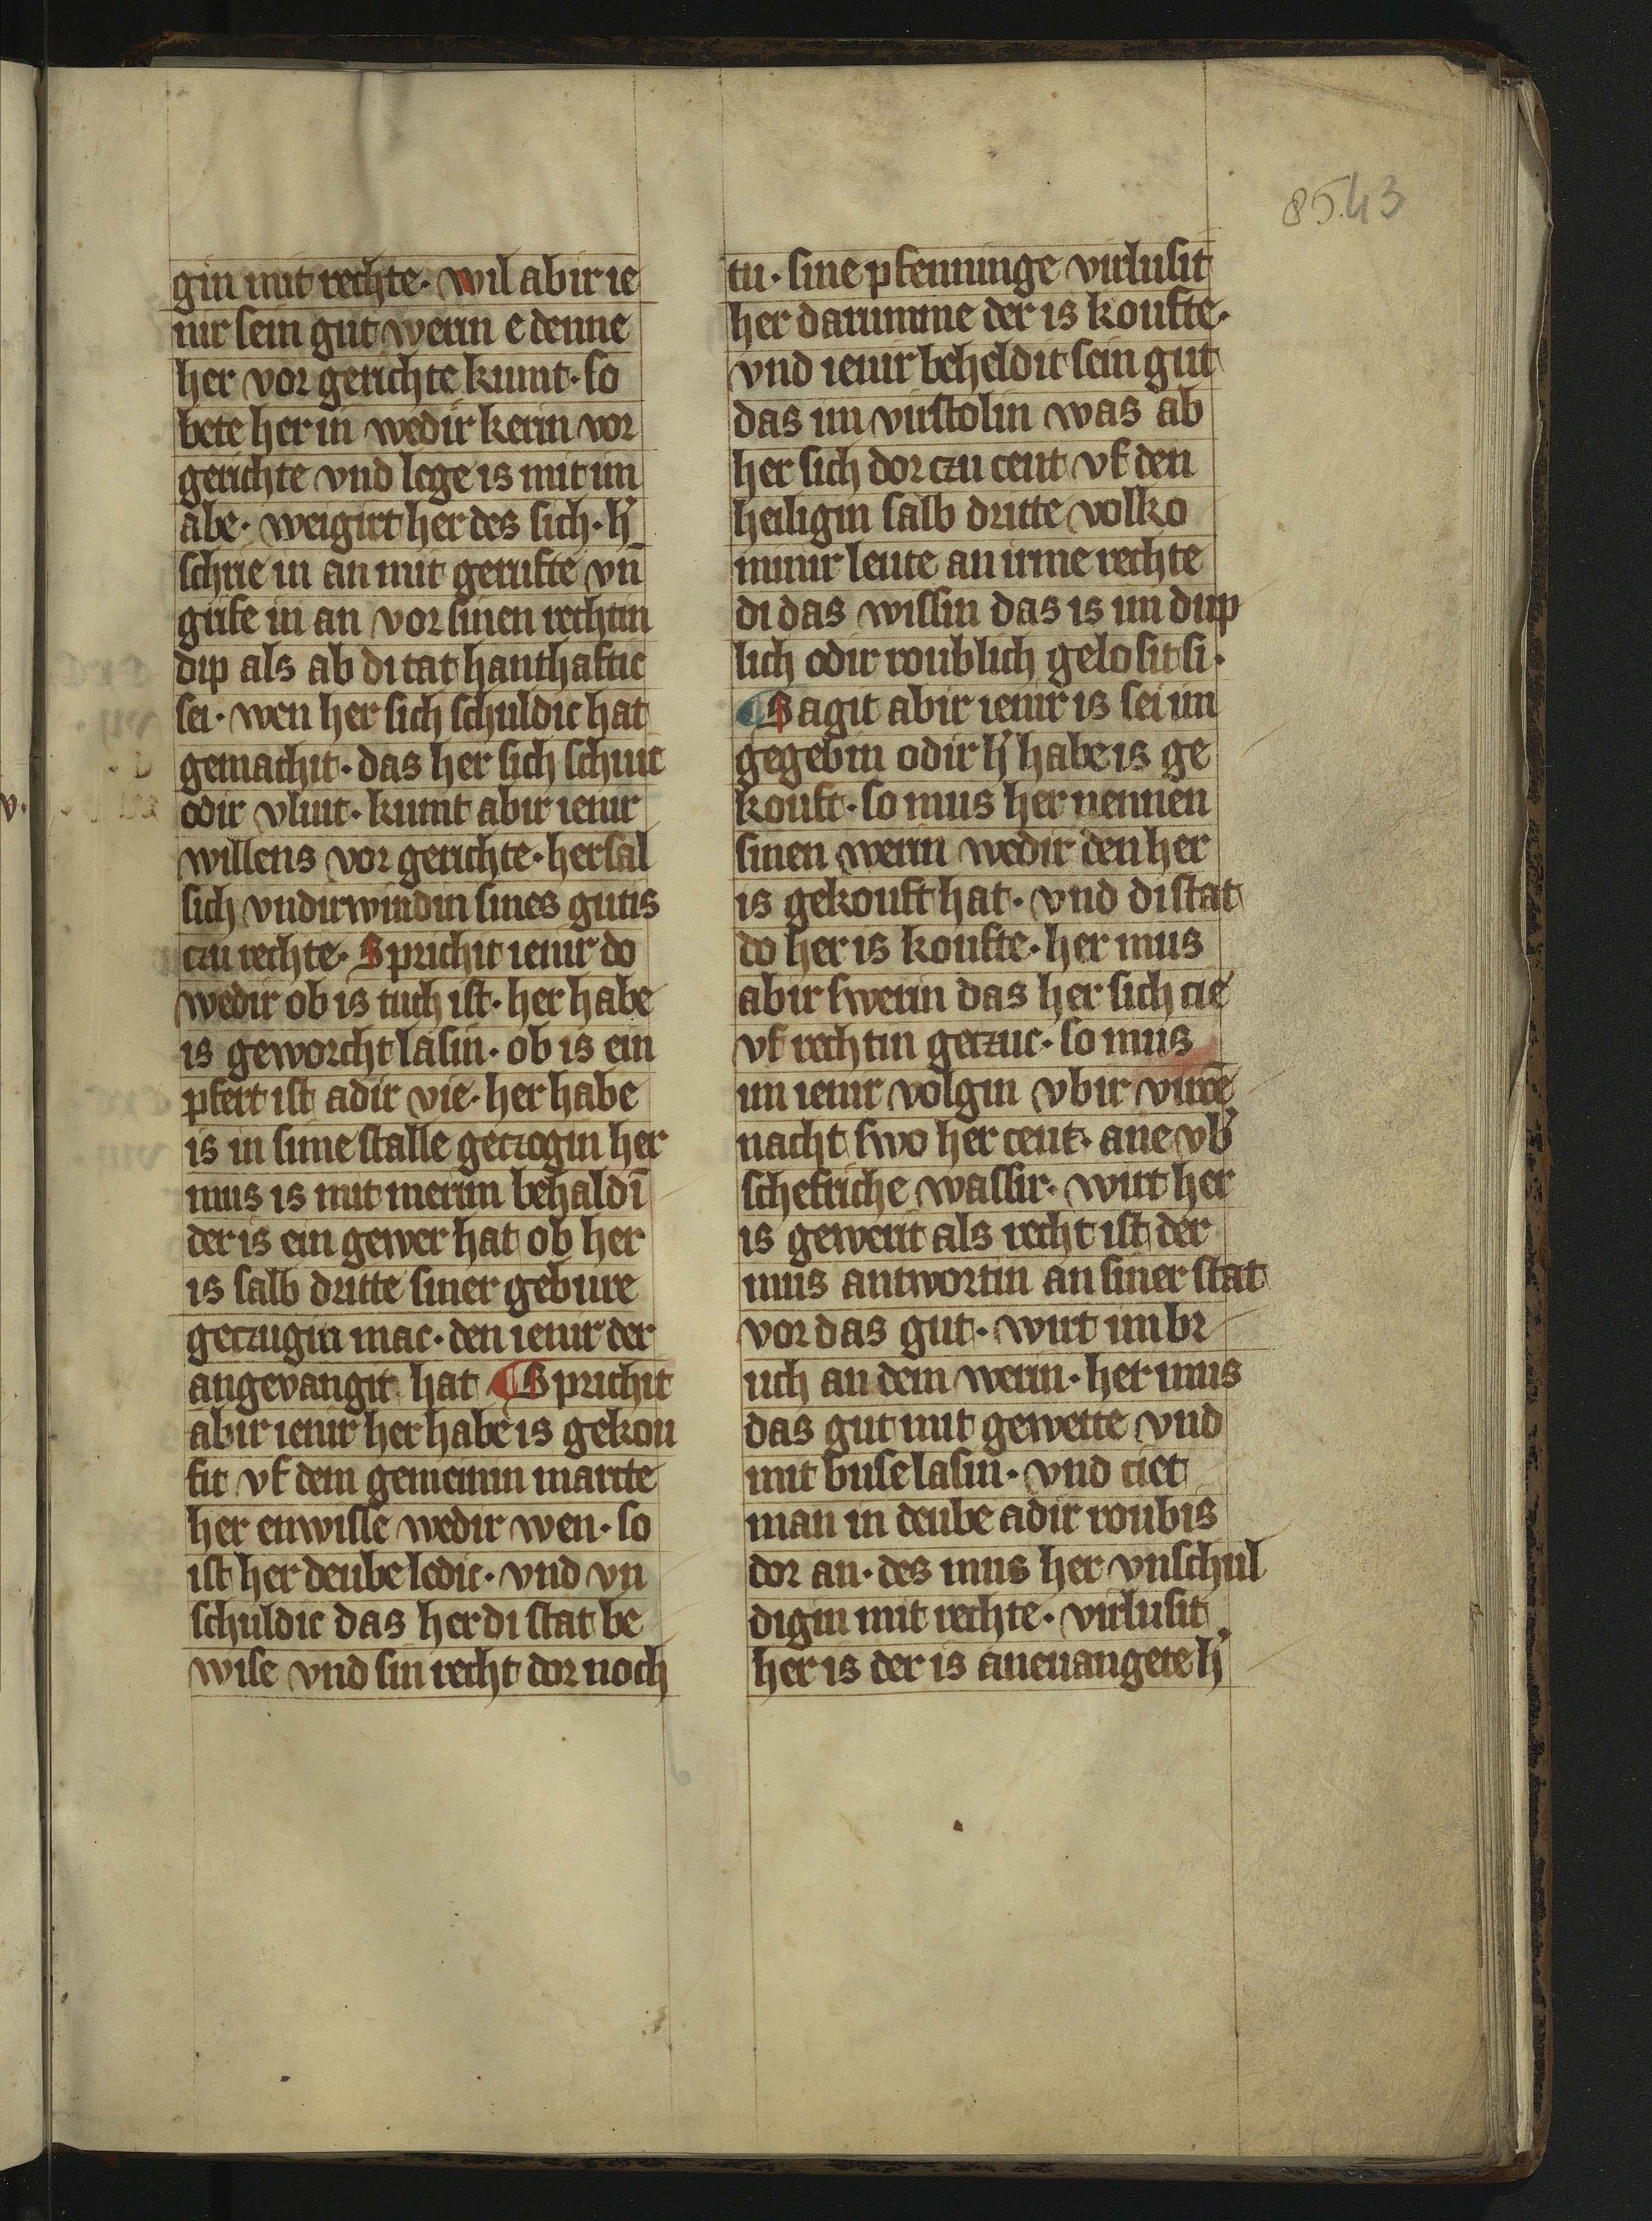 85.43
gin mit rechte· wil abir ie
nir sein gut werin e denne
her vor gerichte kumt· so
bete her in wedir kerin vor
gerichte vnd lege is mit im
abe· weigirt her des sich· h'
schrie in an mit gerufte vn̄
grife in an vor sinen rechtin
dip als ab di tat hanthaftic
sei· wen her sich schuldic hat
gemachit· das her sich schuit
odir vluit· kumt abir ienir
willens vor gerichte· her sal
sich vndirwindin sines gutis
czu rechte· Sprichit ienir do
wedir ob is tuch ist· her habe
is geworcht lasin· ob is ein
pfert ist adir vie· her habe
is in sime stalle geczogin her
mus is mit merim behaldī
der is ein gewer hat ob her
is salb dritte siner gebure
geczugin mac· den ienir der
angevangit hat ¶ Sprichit
abir ienir her habe is gekou
fit vf dem gemeinin marcte
her enwisse wedir wen· so
ist her deube ledic· vnd vn
schuldic das her di stat be
wise vnd sin recht dor noch
tu· sine pfenninge virlusit
her darumme der is koufte·
vnd ienir beheldit sein gut
das im virstolin was ab
her sich dor czu ceut vf den
heiligin salb dritte volko
minir leute an irme rechte
di das wissin das is im dup
lich odir roublich gelosit si·
¶ Sagit abir ienir is sei im
gegebin odir h' habe is ge
kouft· so mus her nennen
sinen werin wedir den her
is gekouft hat· vnd di stat
do her is koufte· her mus
abir swerin das her sich cie
vf rechtin geczuc· so mus
im ienir volgin vbir virce̅
nacht swo her ceut· ane vb'
schefriche wassir· wirt her
is gewerit als recht ist der
mus antwortin an siner stat
vor das gut· wirt im br
uch an dem werin· her mus
das gut mit gewette vnd
mit buse lasin· vnd ciet
man in deube adir roubis
dor an· des mus her vnschul
digin mit rechte· virlusit
her is der is aneuangete h'